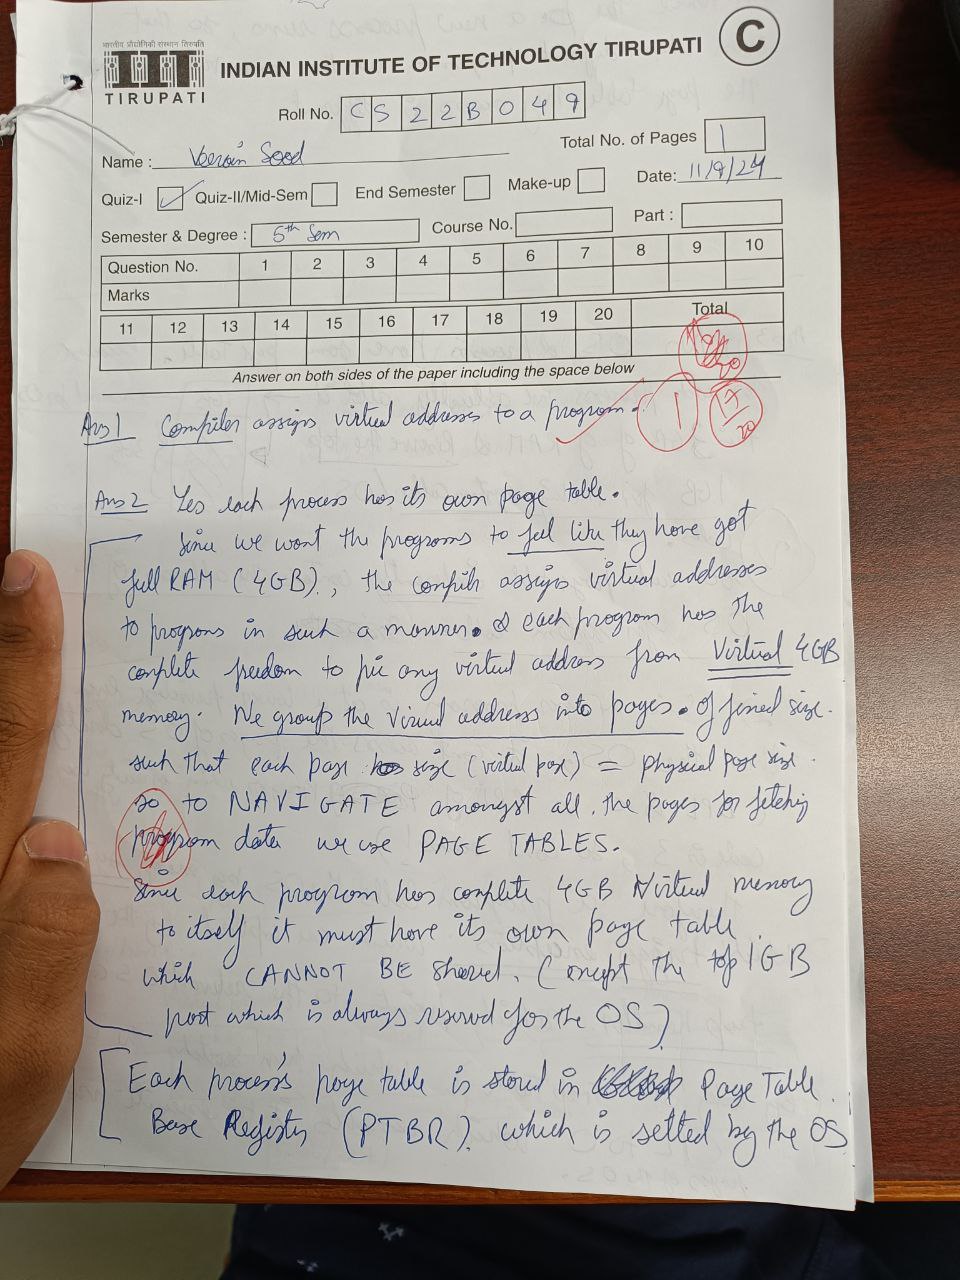 भारतीय प्रौद्योगिकी संस्थान तिरुपति
TIRUPATI
INDIAN INSTITUTE OF TECHNOLOGY TIRUPATI
C
Roll No. CS22B049
Total No. of Pages 1
Name : Sood
Quiz-I Quiz-II/Mid-Sem End Semester Make-up Date: 11/9/24
Semester & Degree : 5th Sem Course No. Part :
Question No. 1 2 3 4 5 6 7 8 9 10
Marks
11 12 13 14 15 16 17 18 19 20 Total
Answer on both sides of the paper including the space below
1
17
20
Ans 1 Compiler assigns virtual addresses to a program.
Ans 2 Yes each process has its own page table.
Since we want the programs to feel like they have got
full RAM (4GB)., the compiler assigns virtual addresses
to programs in such a manner. & each program has the
complete freedom to pic any virtual address from Virtual 4GB
memory. We group the address into pages. of fixed size.
such that each page size (virtual page) = Physical page size.
so to NAVIGATE amongst all the pages for fetching
program data we use PAGE TABLES.
Since each program has complete 4GB Virtual memory
to itself it must have its own page table
which CANNOT BE shared. (except the top 1GB
part which is always reserved for the OS)
Each process's page table is stored in Page Table
Base Register (PTBR). which is setted by the OS